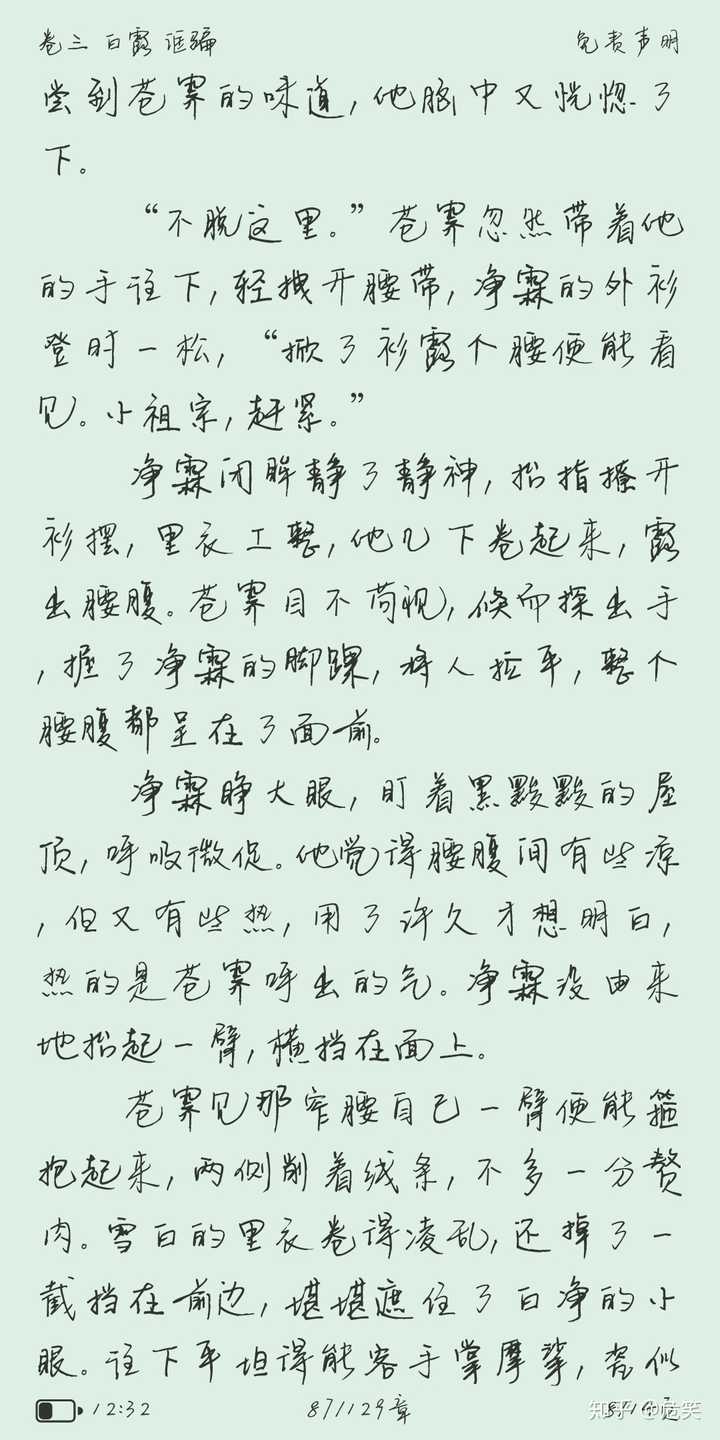 卷三 白露 诓骗 免责声明
尝到苍霁的味道，他脑中又恍惚了
下。
“不脱这里。”苍霁忽然带着他
的手往下，轻拽开腰带，净霖的外衫
登时一松，“掀了衫露个腰便能看
见。小祖宗，赶紧。”
净霖闭眸静了静神，抬指撩开
衫摆，里衣工整，他几下卷起来，露
出腰腹。苍霁目不苟视，倏而探出手
，握了净霖的脚踝，将人拉平，整个
腰腹都呈在了面前。
净霖睁大眼，盯着黑黢黢的屋
顶，呼吸微促。他觉得腰腹间有些凉
，但又有些热，用了许久才想明白，
热的是苍霁呼出的气。净霖没由来
地抬起一臂，横挡在面上。
苍霁见那窄腰自己一臂便能箍
抱起来，两侧削着线条，不多一分赘
肉。雪白的里衣卷得凌乱，还掉了一
截挡在前边，堪堪遮住了白净的小
眼。往下平坦得能容手掌摩挲，瓷似
12:32 87/129章
知乎 @危笑